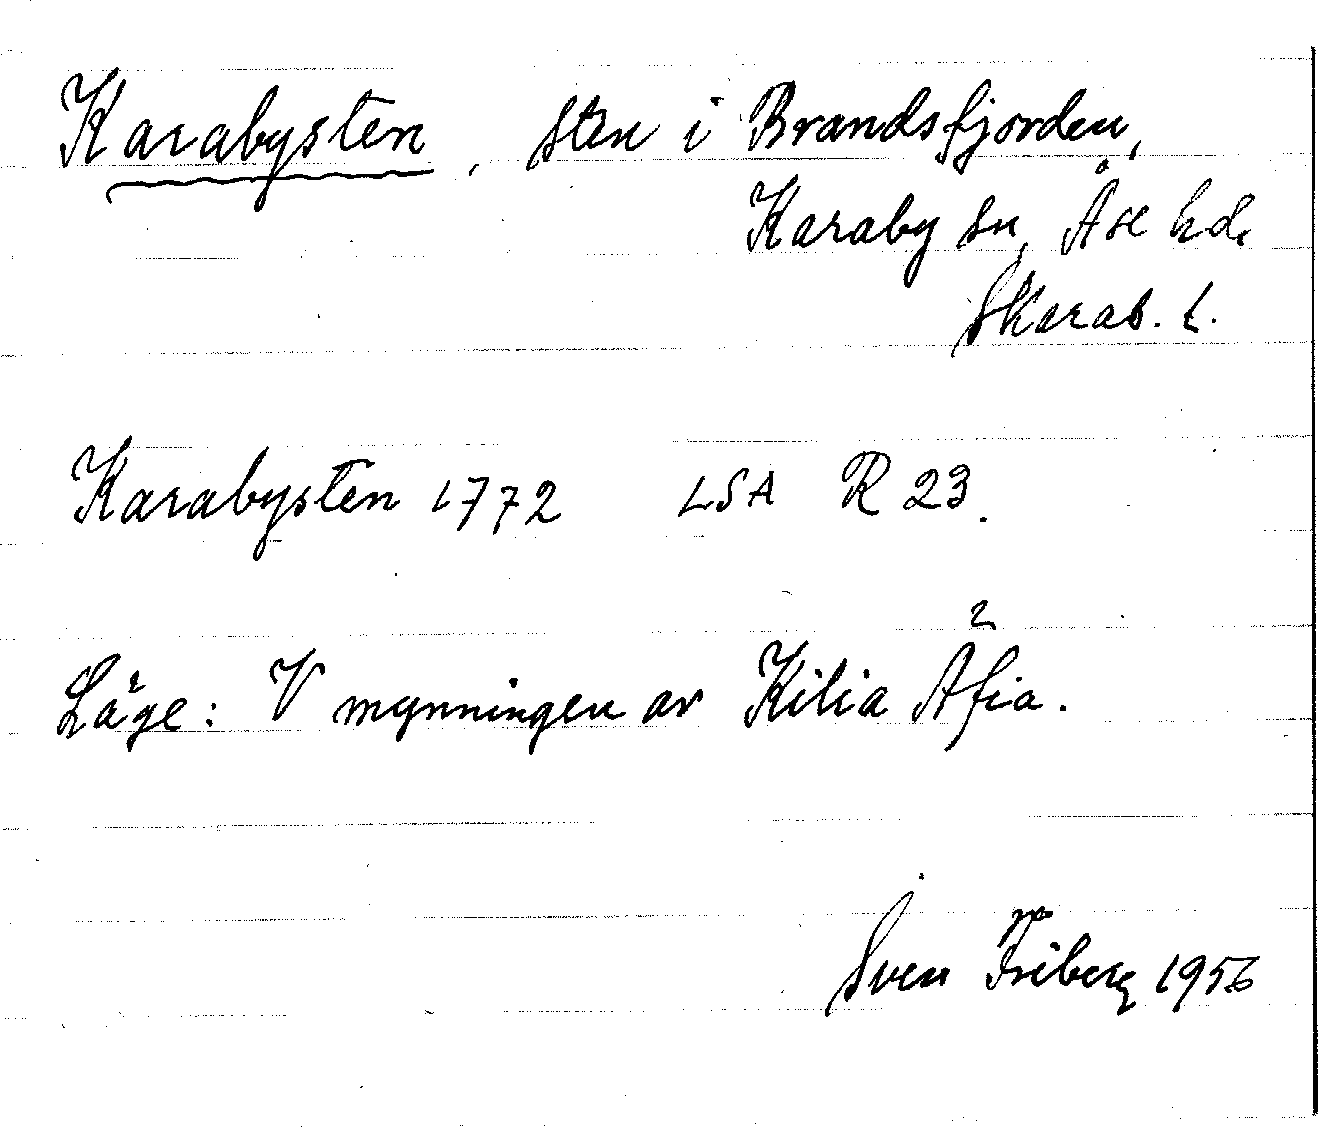 Karabysten, sten i Brandsfjorden,
Karaby sn, Åse hd,
Skarab. l.
Karabysten 1772 LSA R 23.
Läge: V mynningen av Kilia Åfia.
Sven Friberg 1956